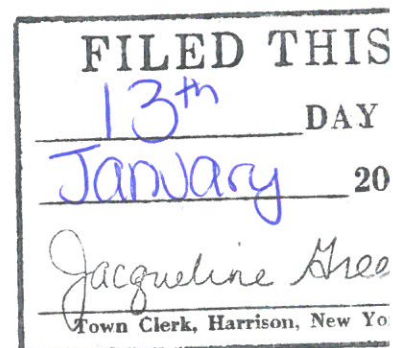 FILED THIS
13th DAY
January 20
Jacqueline Gree
Town Clerk, Harrison, New Yo